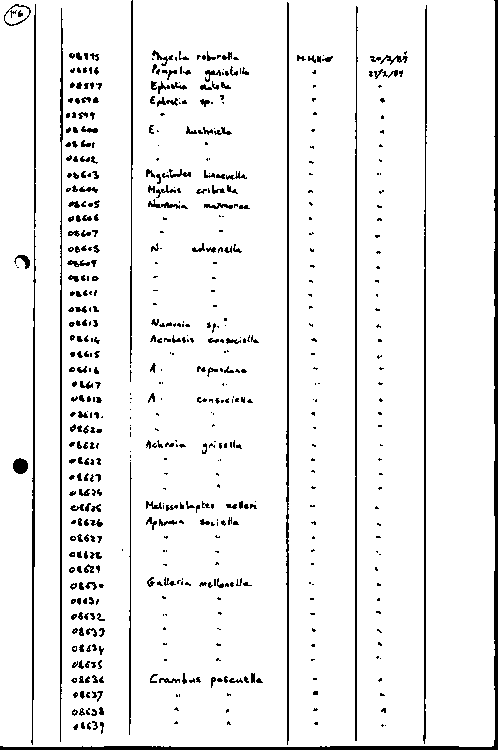 146
08595 Phycita roborella M. Hillier 20/2/89
08596 Pempelia genistella " 23/2/89
08597 Ephestia elutella " "
08598 Ephestia sp. ? " "
08599 " " "
08600 E. kuehniella " "
08601 " " " "
08602 " " " "
08603 Phycitodes binaevella " "
08604 Myelois cribrella " "
08605 Numonia marmorea " "
08606 " " " "
08607 " " " "
08608 N. advenella " "
08609 " " " "
08610 " " " "
08611 " " " "
08612 " " " "
08613 Numonia sp. ? " "
08614 Acrobasis consociella " "
08615 " " " "
08616 A. repandana " "
08617 " " " "
08618 A. consociella " "
08619 " " " "
08620 " " " "
08621 Achroia grisella " "
08622 " " " "
08623 " " " "
08624 " " " "
08625 Melissoblaptes zelleri " "
08626 Aphomia sociella " "
08627 " " " "
08628 " " " "
08629 " " " "
08630 Galleria mellonella " "
08631 " " " "
08632 " " " "
08633 " " " "
08634 " " " "
08635 " " " "
08636 Crambus pascuella " "
08637 " " " "
08638 " " " "
08639 " " " "